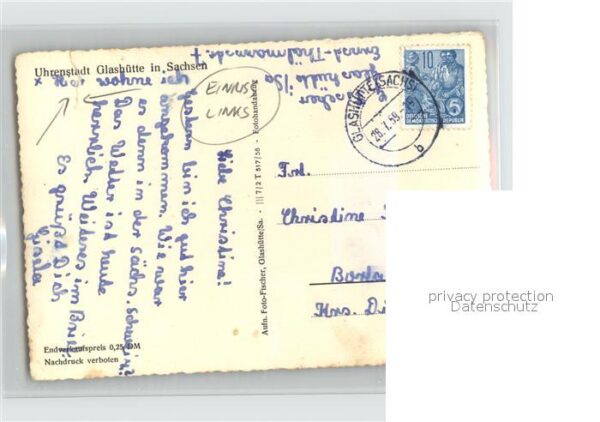 Uhrenstadt Glashütte in Sachsen
x hier wohne ich
EINRISS
LINKS
Liebe Christine!
Gestern bin ich gut hier
angekommen. Wie war
es denn in der Sächs. Schweiz?
Das Wetter ist heute
herrlich. Weiteres im Brief.
Es grüßt Dich
Gisela
Endverkaufspreis 0,25 DM
Nachdruck verboten
Aufn. Foto-Fischer, Glashütte/Sa. - III 7/2 T 517/58 - Fotohandabzug
Glashütte/Sa
Ernst-Thälmannstr. +
10
5
DEUTSCHE
DEMOKRATISCHE REPUBLIK
GLASHÜTTE (SACHS)
28.7.59
b
Frl.
Christine
Borta
Krs. Di
privacy protection
Datenschutz